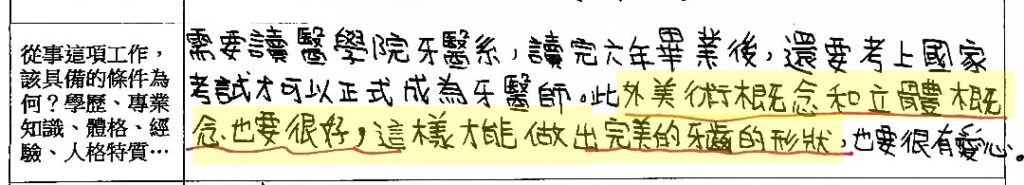 從事這項工作，
該具備的條件為
何？學歷、專業
知識、體格、經
驗、人格特質…
需要讀醫學院牙醫系，讀完六年畢業後，還要考上國家
考試才可以正式成為牙醫師。此外美術概念和立體概
念也要很好，這樣才能做出完美的牙齒的形狀，也要很有愛心。